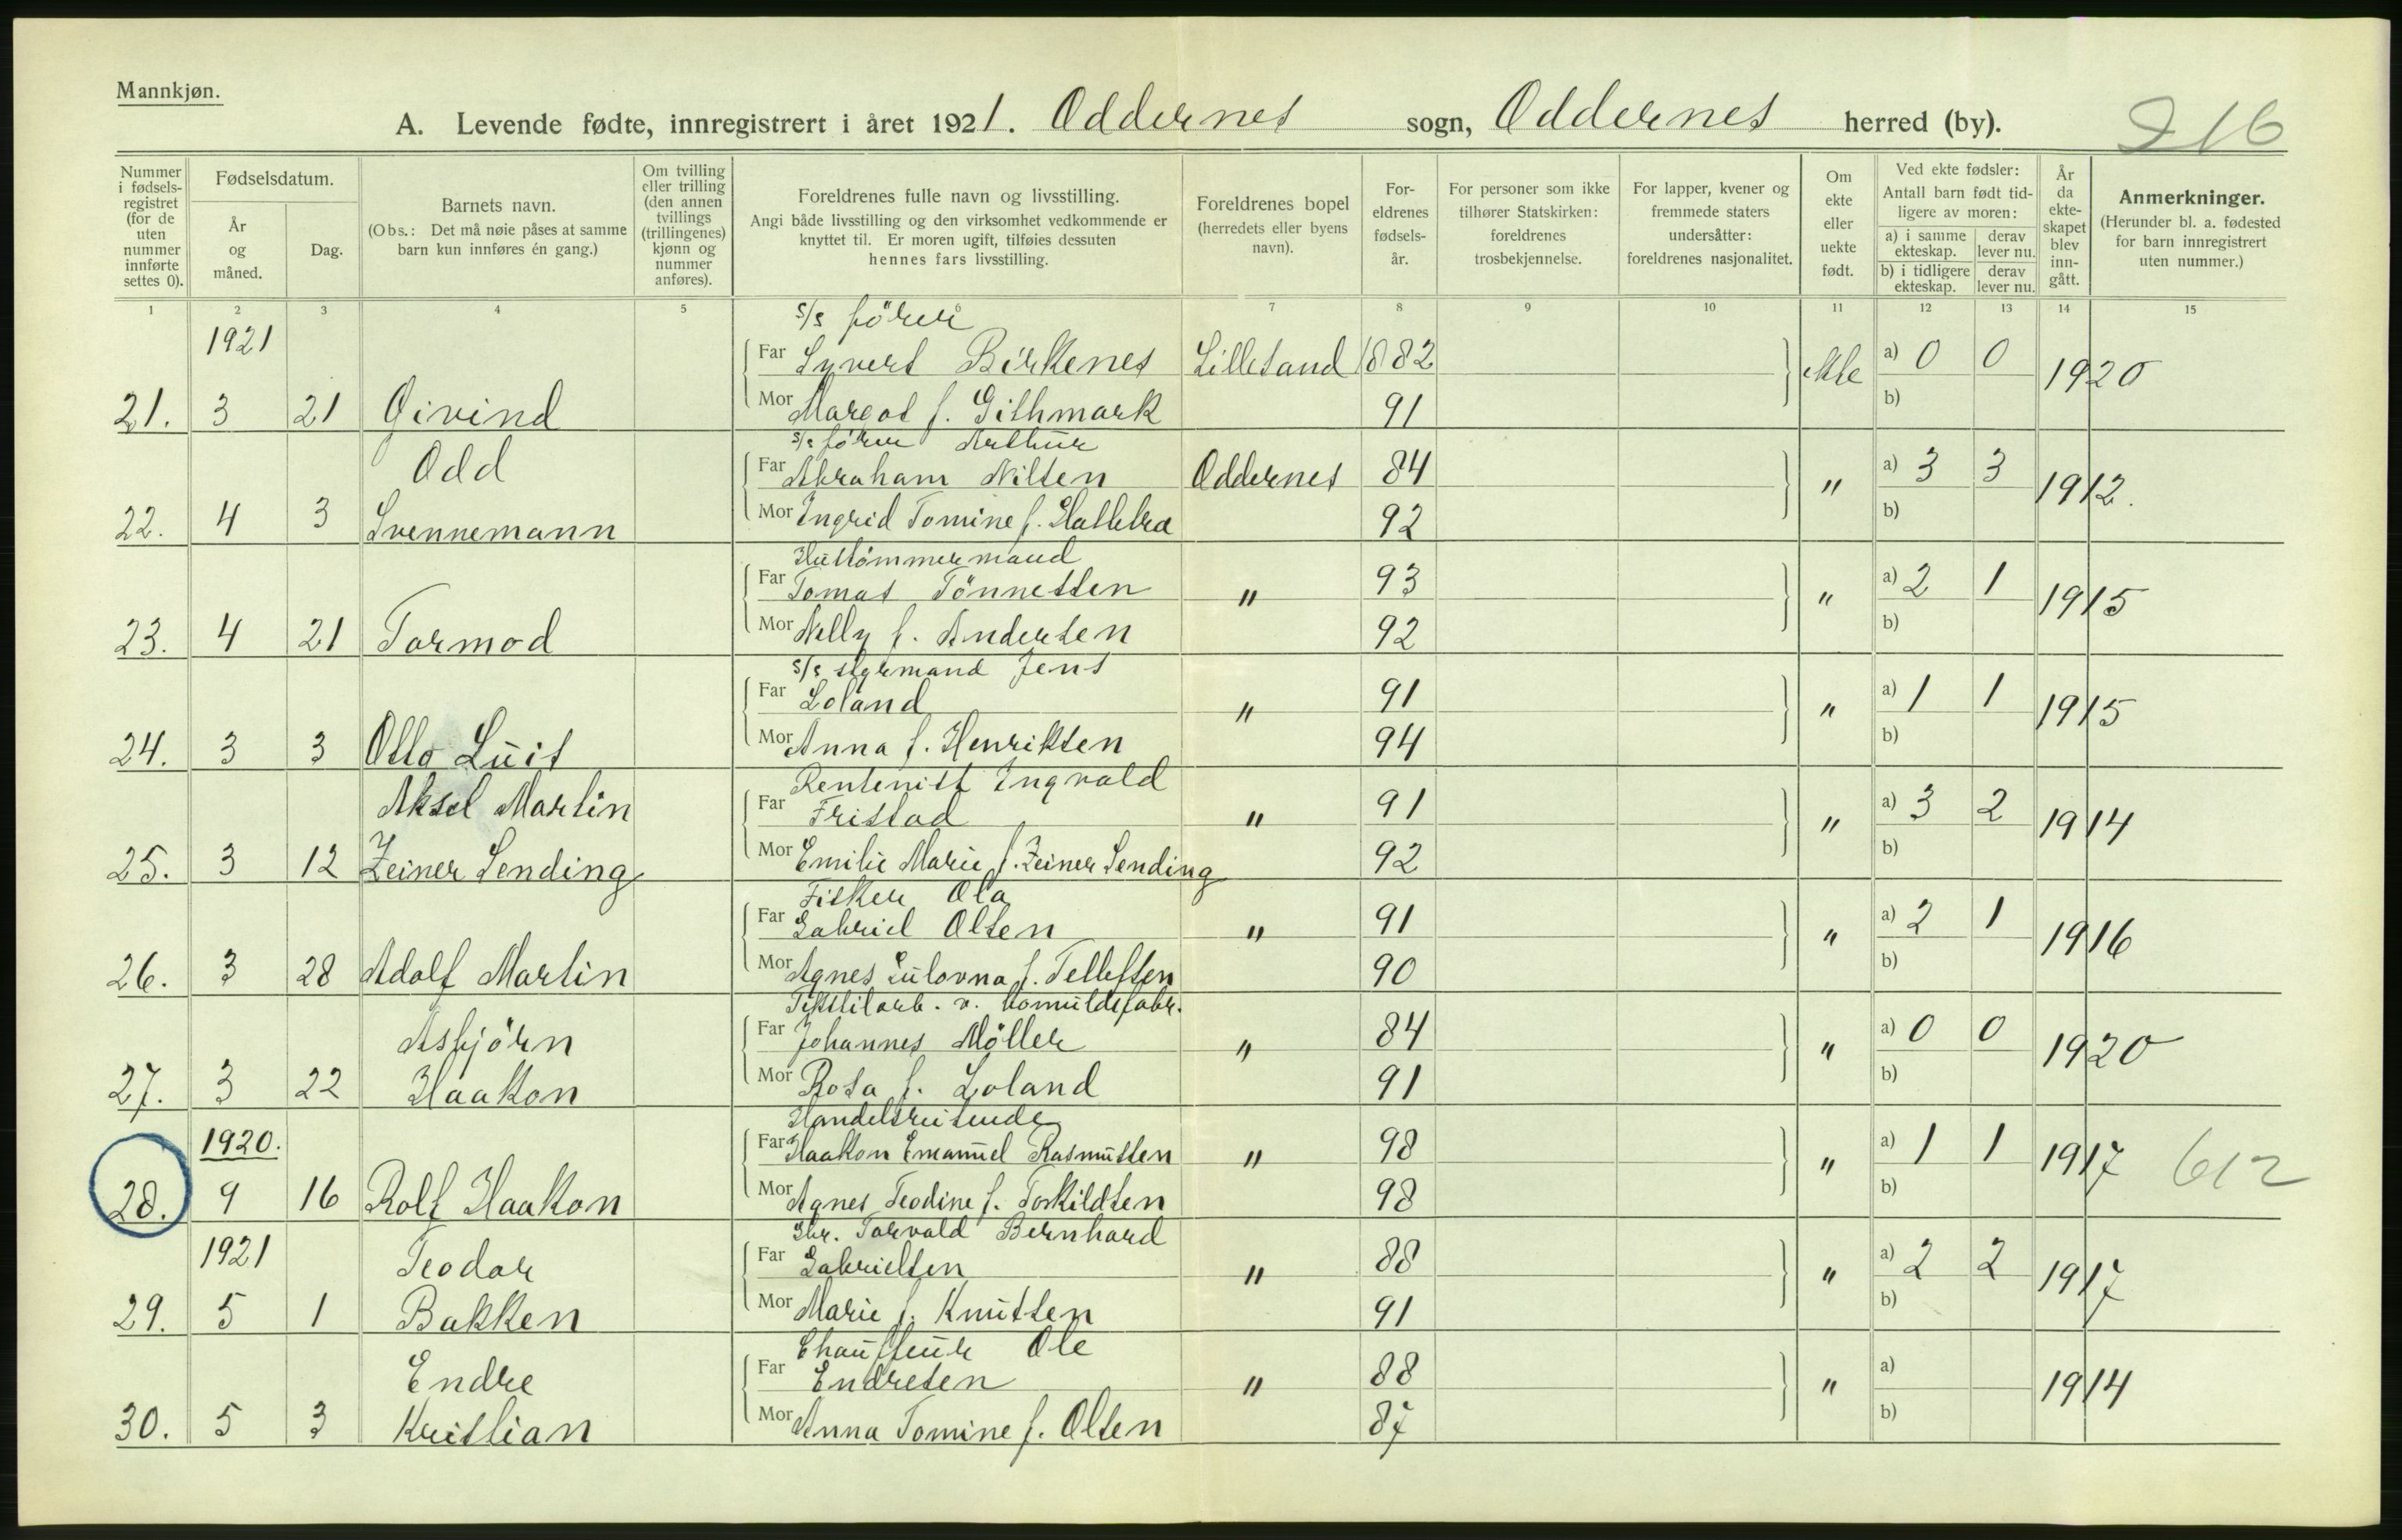 Mannkjøn.
A. Levende fødte, innregistrert i året 1921. Oddernes sogn, Oddernes herred (by).
216
Nummer i fødsels-registret (for de uten nummer innførte settes 0).
Fødselsdatum.
År og måned.
Dag.
Barnets navn.
(Obs.: Det må nøie påses at samme barn kun innføres én gang.)
Om tvilling eller trilling (den annen tvillings (trillingenes) kjønn og nummer anføres).
Foreldrenes fulle navn og livsstilling.
Angi både livsstilling og den virksomhet vedkommende er knyttet til. Er moren ugift, tilføies dessuten hennes fars livsstilling.
Foreldrenes bopel (herredets eller byens navn).
For-eldrenes fødsels-år.
For personer som ikke tilhører Statskirken: foreldrenes trosbekjennelse.
For lapper, kvener og fremmede staters undersåtter: foreldrenes nasjonalitet.
Om ekte eller uekte født.
Ved ekte fødsler:
Antall barn født tid-ligere av moren:
a) i samme ekteskap. derav lever nu.
b) i tidligere ekteskap. derav lever nu.
År da ekte-skapet blev inn-gått.
Anmerkninger.
(Herunder bl. a. fødested for barn innregistrert uten nummer.)
1 2 3 4 5 6 7 8 9 10 11 12 13 14 15
1921 s/s förer
Far Syvert Birkenes Lillesand 1882 ekte a) 0 0 1920
21. 3 21 Øivind Mor Margot f. Githmark 91 b)
Odd s/s förer Arthur
Far Abraham Nilsen Oddernes 84 " a) 3 3 1912.
22. 4 3 Svennemann Mor Ingrid Tomine f. Hallebra 92 b)
Hustömmermand
Far Tomas Tönnessen " 93 " a) 2 1 1915
23. 4 21 Tormod Mor Nelly f. Andersen 92 b)
s/s styrmand Jens
Far Loland " 91 " a) 1 1 1915
24. 3 3 Otto Luis Mor Anna f. Henriksen 94 b)
Aksel Martin Rentenist Ingvald
Far Fristad " 91 " a) 3 2 1914
25. 3 12 Zeiner Sending Mor Emilie Marie f. Zeiner Sending 92 b)
Fisker Ola
Far Gabriel Olsen " 91 " a) 2 1 1916
26. 3 28 Adolf Martin Mor Agnes Lulovna f. Tellefsen 90 b)
Tekstilarb. v. bomuldsfabr.
Asbjörn Far Johannes Möller " 84 " a) 0 0 1920
27. 3 22 Haakon Mor Rosa f. Loland 91 b)
1920. Handelsreisende
Far Haakon Emanuel Rasmussen " 98 " a) 1 1 1917 612
28. 9 16 Rolf Haakon Mor Agnes Teodine f. Torkildsen 98 b)
1921 Teodor Gbr. Torvald Bernhard
Far Gabrielsen " 88 " a) 2 2 1917
29. 5 1 Bakken Mor Marie f. Knutsen 91 b)
Endre Chauffeur Ole
Far Endresen " 88 " a) 1914
30. 5 3 Kristian Mor Anna Tomine f. Olsen 87 b)